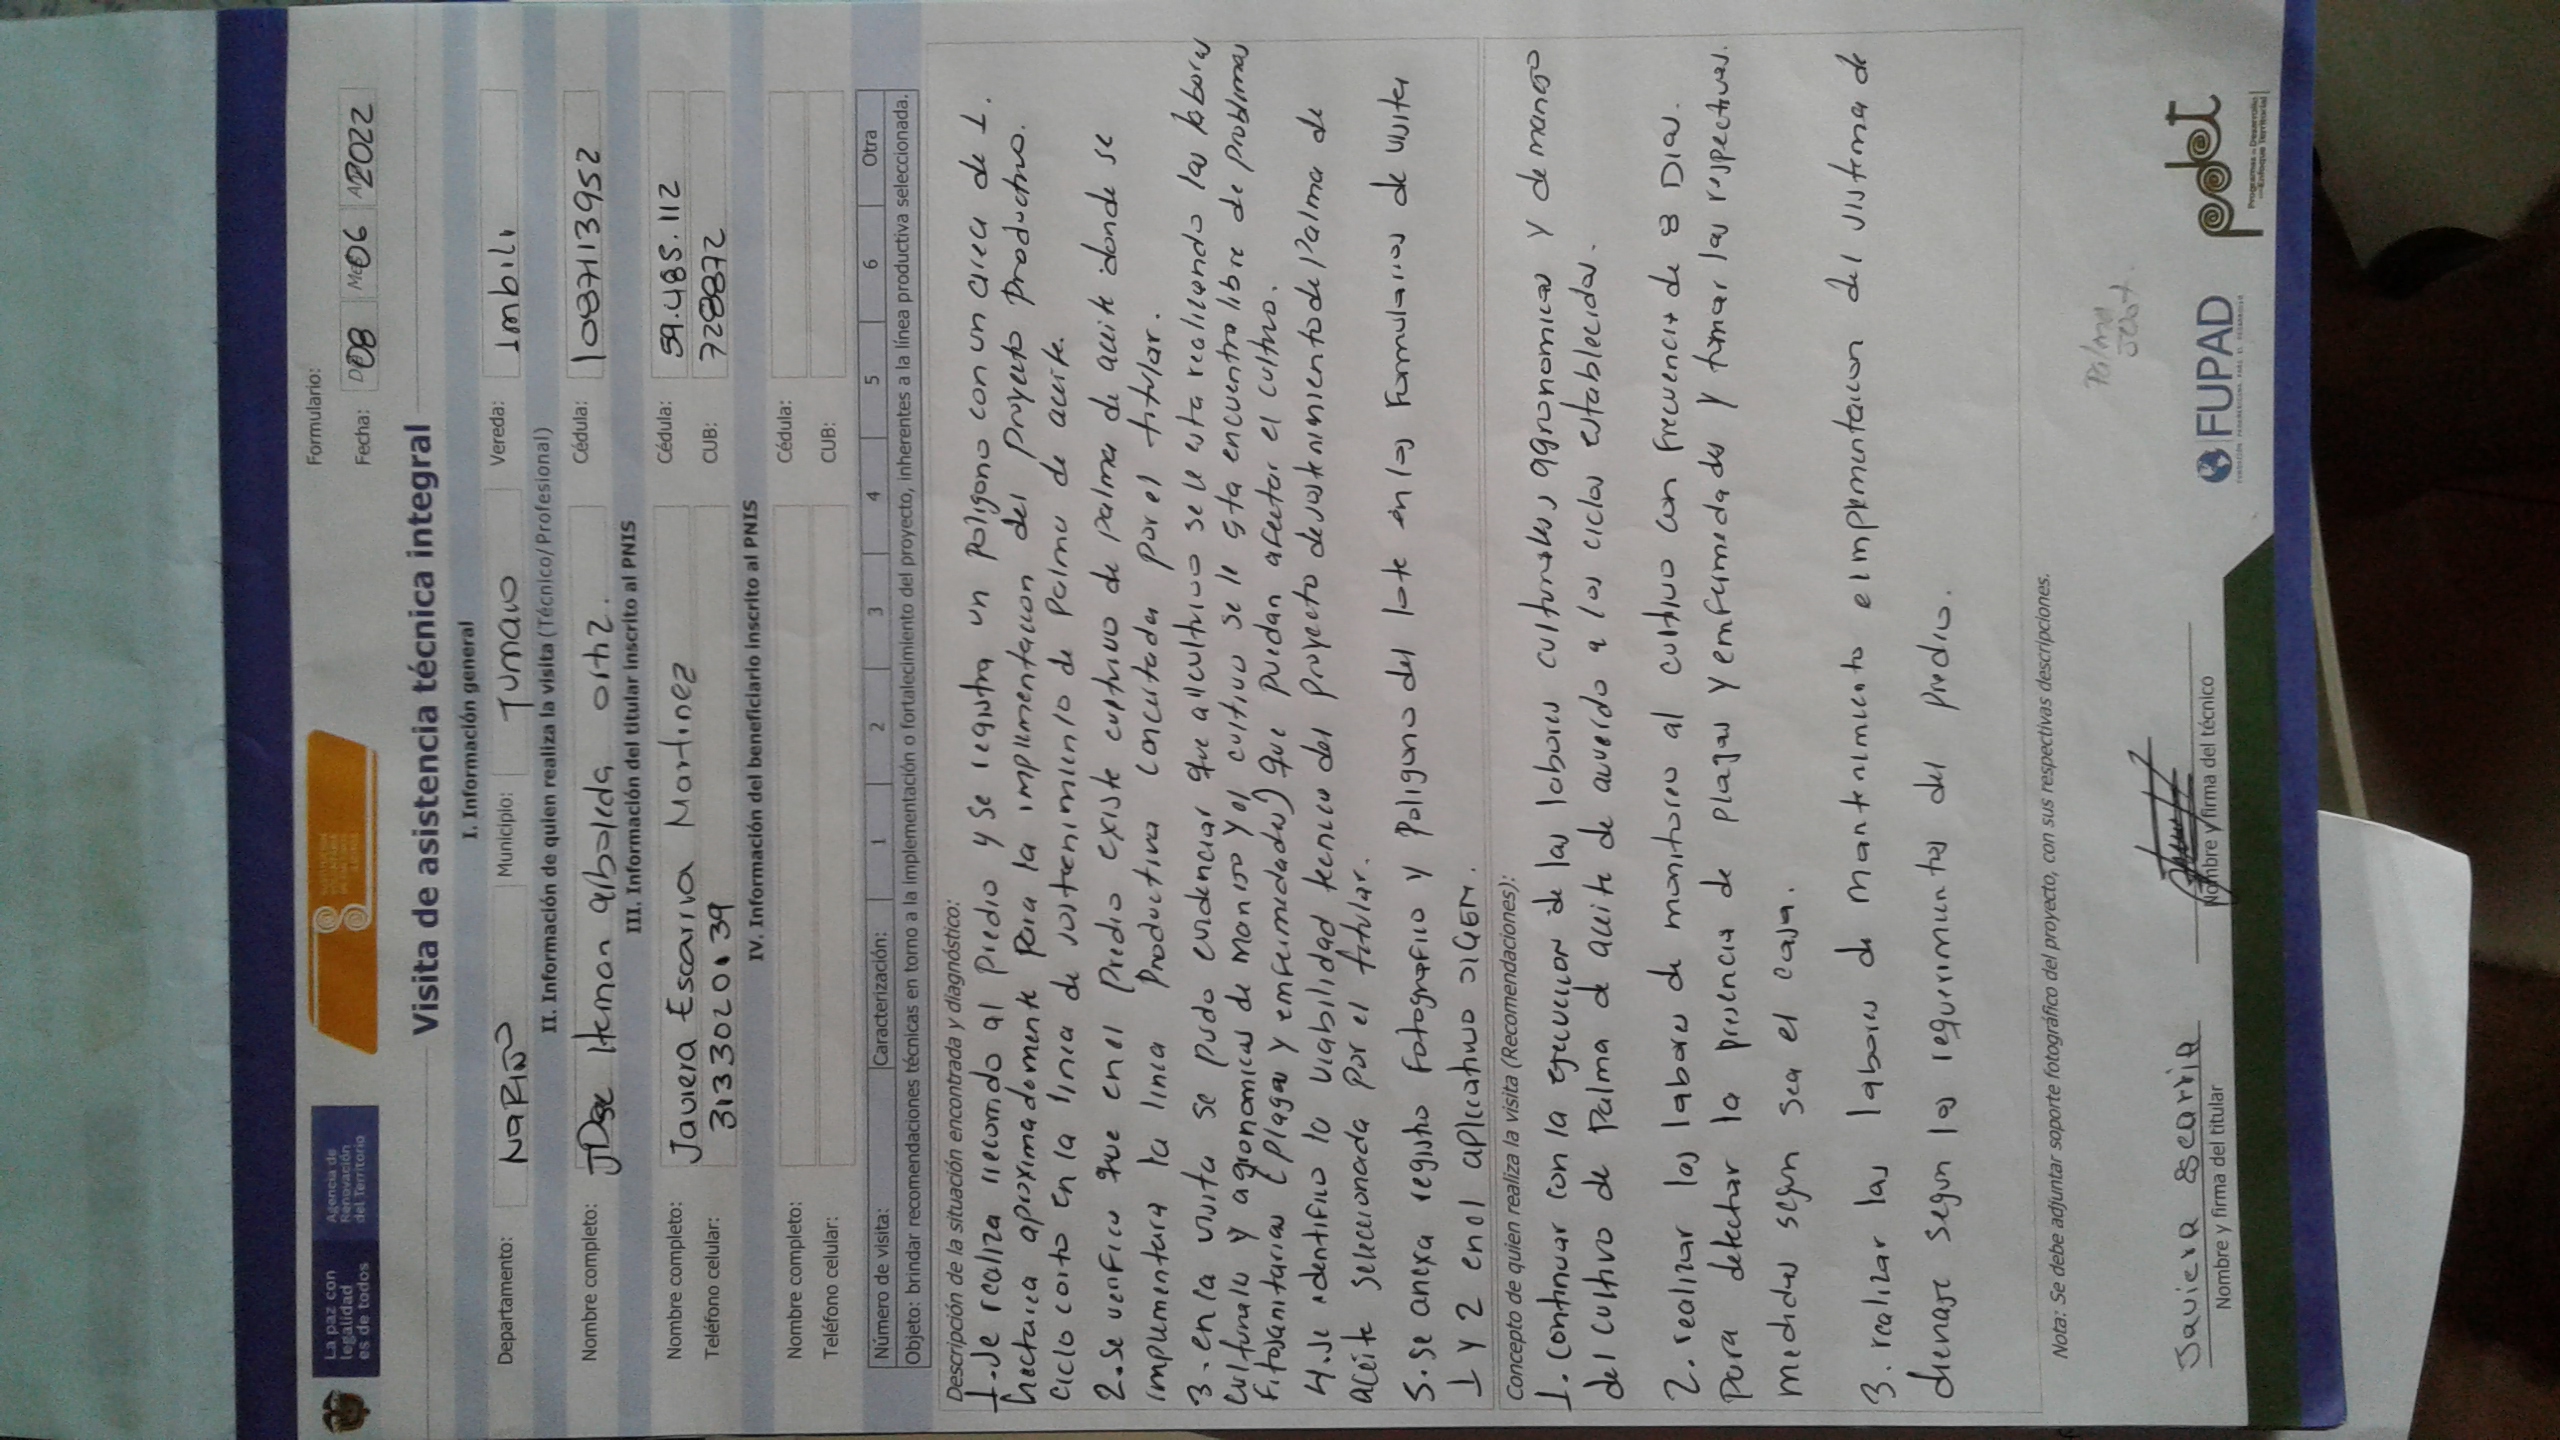 La paz con
legalidad
es de todos
Agencia de
Renovación
del Territorio
Formulario:
Fecha: D 08 M 06 A 2022
Visita de asistencia técnica integral
I. Información general
Departamento: NARIÑO Municipio: Tumaco Vereda: Imbili
II. Información de quien realiza la visita (Técnico/Profesional)
Nombre completo: Jose Hernan arboleda ortiz. Cédula: 1087113952
III. Información del titular inscrito al PNIS
Nombre completo: Javiera Escarria Martinez Cédula: 59.485.112
Teléfono celular: 3133020139 CUB: 728872
IV. Información del beneficiario inscrito al PNIS
Nombre completo: Cédula:
Teléfono celular: CUB:
Número de visita: Caracterización: 1 2 3 4 5 6 Otra
Objeto: brindar recomendaciones técnicas en torno a la implementación o fortalecimiento del proyecto, inherentes a la línea productiva seleccionada.
Descripción de la situación encontrada y diagnóstico:
1. Se realiza recorrido al Predio y se registra un Poligono con un area de 1.
hectarea aproximadamente Para la implementacion del Proyecto Productivo.
ciclo corto en la linea de sostenimiento de Palma de aceite.
2. Se verifico que en el Predio existe cultivo de palma de aceite donde se
implementara la linea Productiva concertada por el titular.
3. en la visita se pudo evidenciar que al cultivo se le esta realizando las labores
culturales y agronomicas de manejo y el cultivo se le esta encuentra libre de problemas
Fitosanitarias (plagas y enfermedades) que puedan afectar el cultivo.
4. se identifico la viabilidad tecnica del proyecto de sostenimiento de Palma de
aceite seleccionada Por el titular.
5. se anexa registro Fotografico y Poligono del lote en los Formularios de visita
1 y 2 en el aplicativo SIGEM.
Concepto de quien realiza la visita (Recomendaciones):
1. continuar con la ejecucion de las labores culturales, agronomicas y de manejo
del cultivo de Palma de aceite de acuerdo a los ciclos establecidos.
2. realizar las labores de monitoreo al cultivo con Frecuencia de 8 Dias.
para detectar la presencia de plagas y enfermedades y tomar las respectivas.
medidas segun sea el caso.
3. realizar las labores de mantenimiento e implementacion del sistema de
drenaje segun los requerimientos del predio.
Nota: Se debe adjuntar soporte fotográfico del proyecto, con sus respectivas descripciones.
Palma
Javiera Escarria
Nombre y firma del titular
Nombre y firma del técnico
FUPAD
FUNDACIÓN PANAMERICANA PARA EL DESARROLLO
pdet
Programas de Desarrollo
con Enfoque Territorial